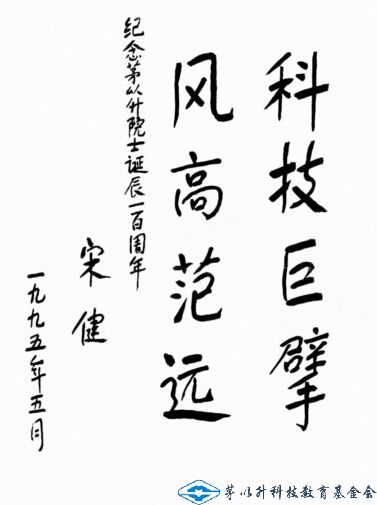 科技巨擘
风高范远
纪念茅以升院士诞辰一百周年
宋健
一九九五年五月
茅以升科技教育基金会